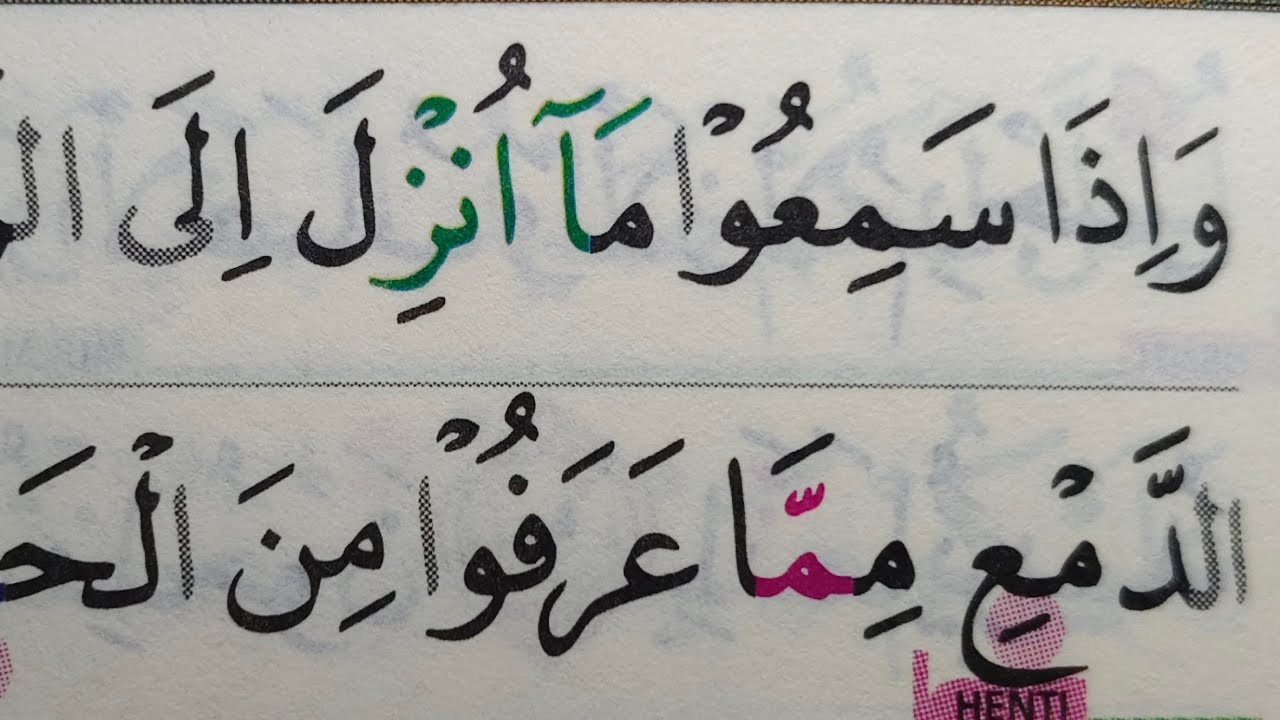 وَاِذَا سَمِعُوْا مَآ اُنْزِلَ اِلَى
الدَّمْعِ مِمَّا عَرَفُوْا مِنَ
HENTI